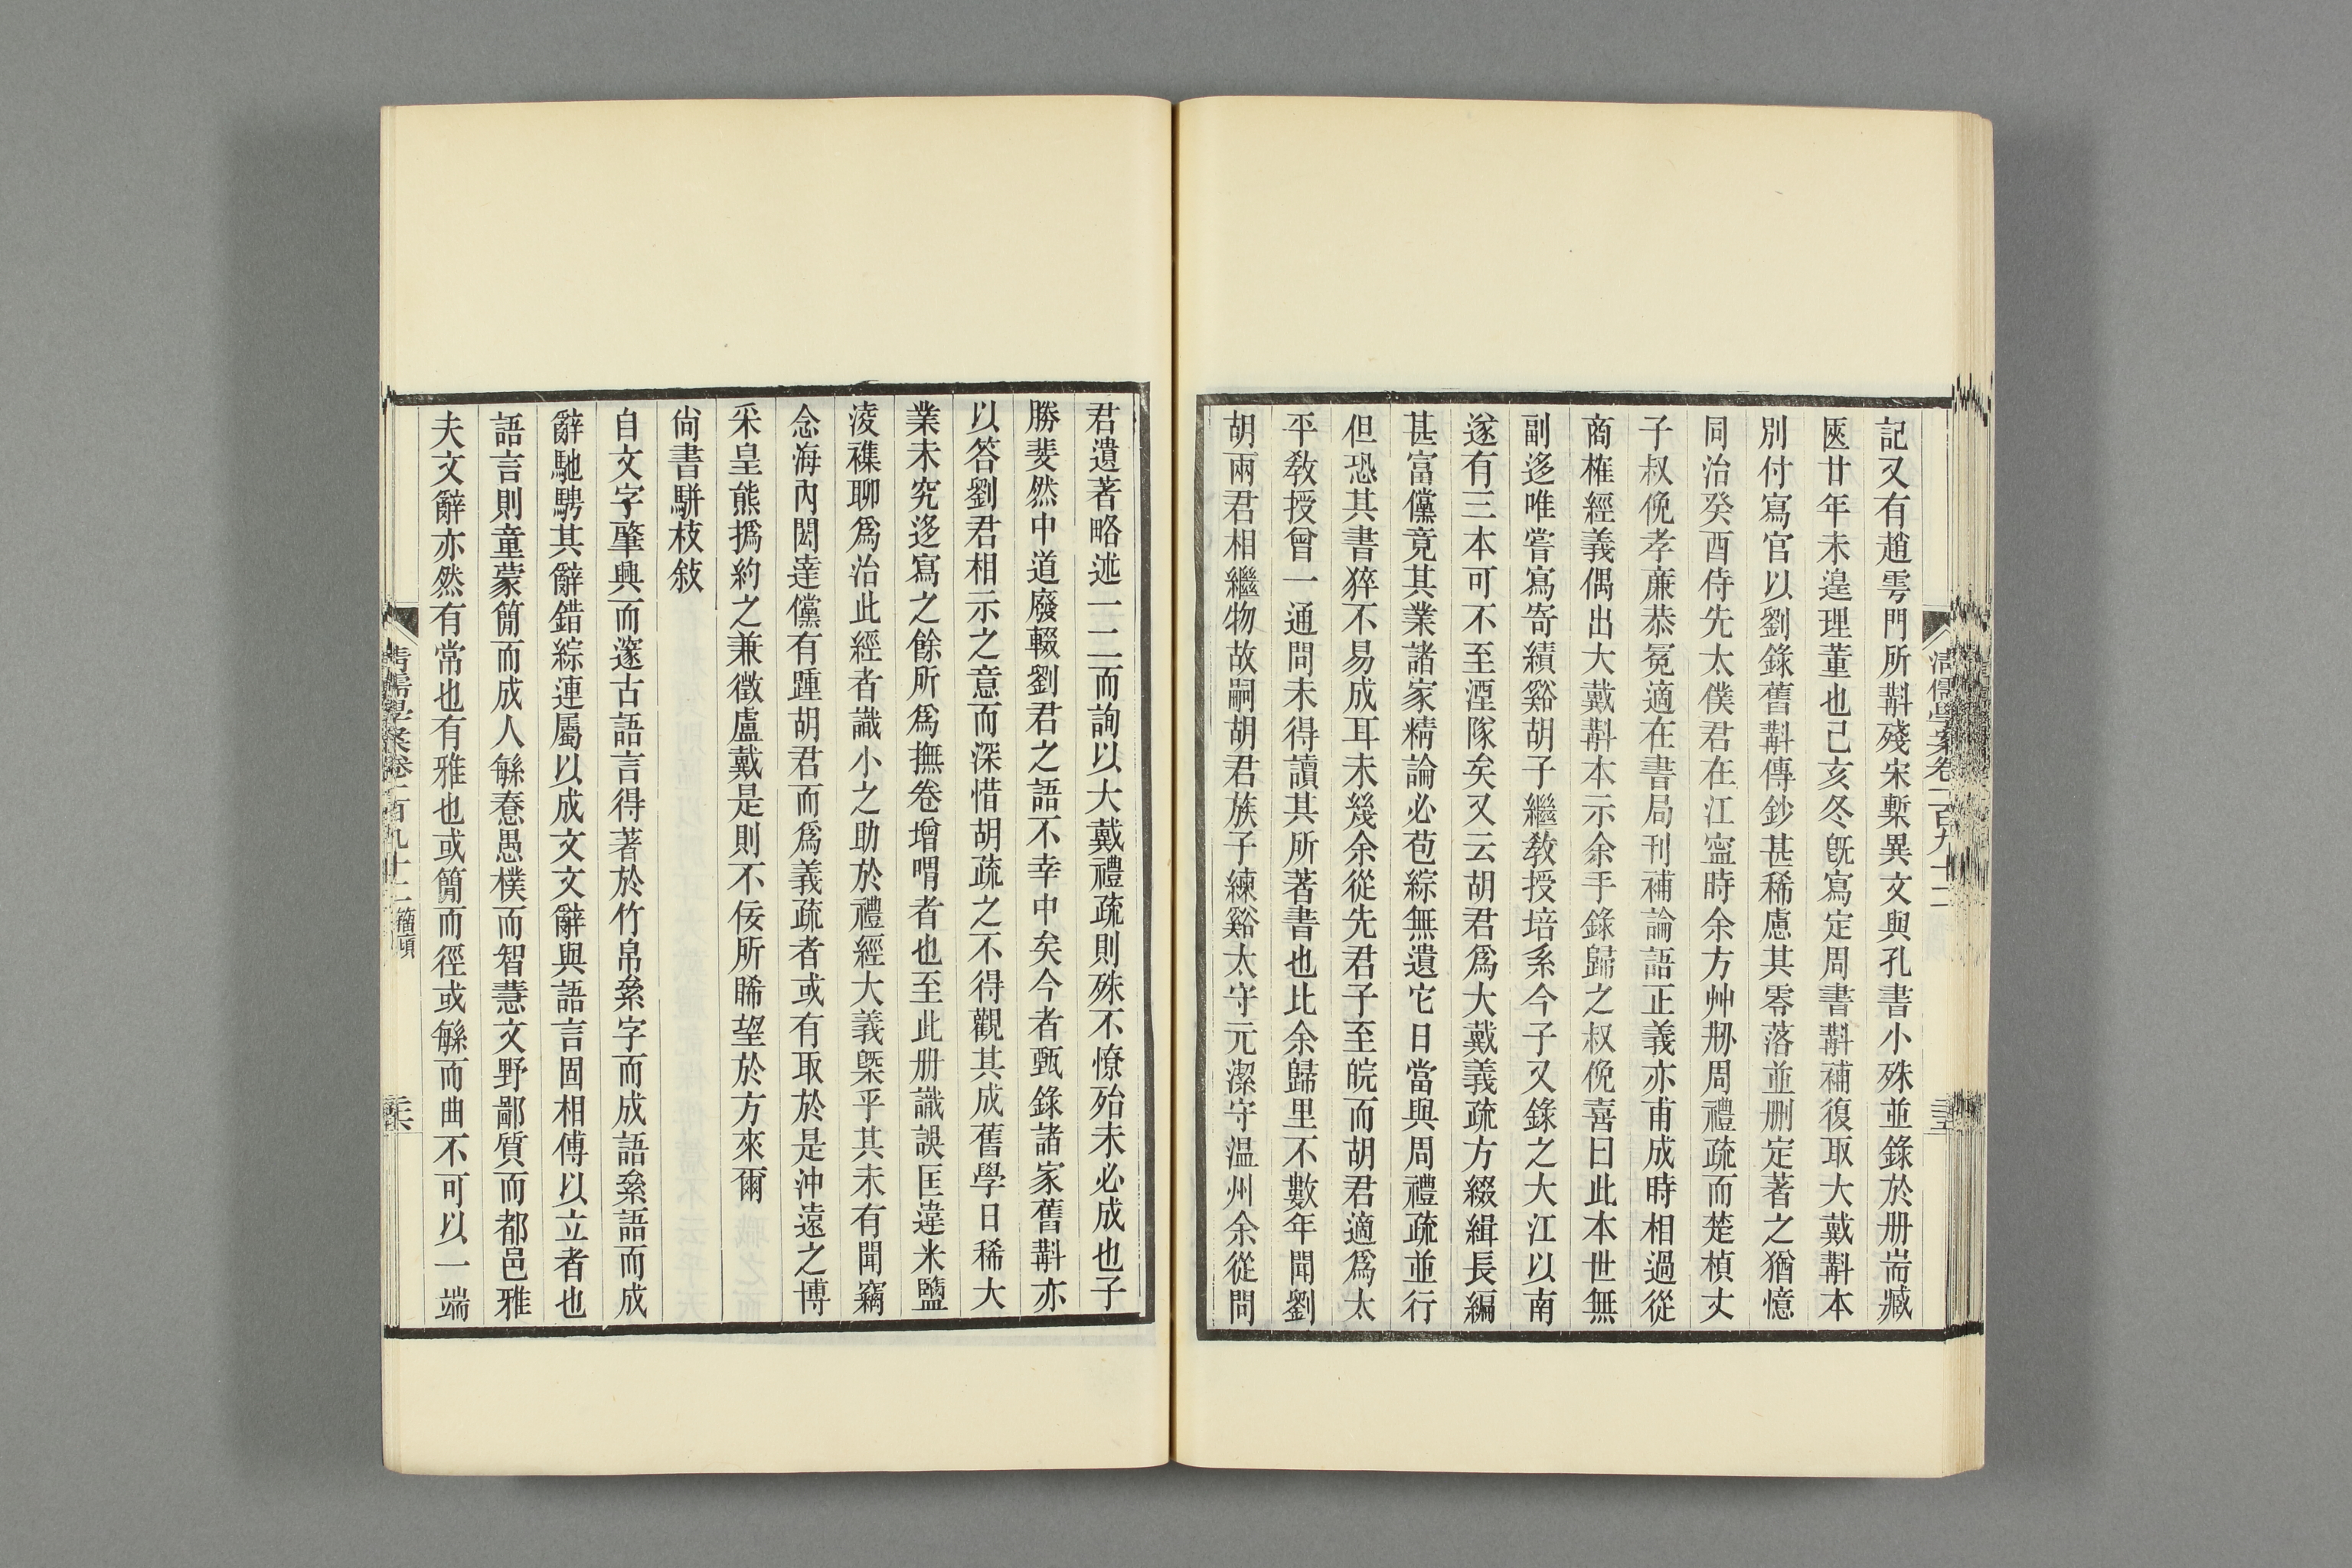 記又有趙雩門所斠殘宋槧異文與孔書小殊並錄於册耑臧
匧廿年未遑理董也己亥冬旣寫定周書斠補復取大戴斠本
別付寫官以劉錄舊斠傳鈔甚稀慮其零落並删定著之猶憶
同治癸酉侍先太僕君在江寍時余方艸剏周禮疏而楚楨丈
子叔俛孝廉恭冕適在書局刊補論語正義亦甫成時相過從
商榷經義偶出大戴斠本示余手錄歸之叔俛喜曰此本世無
副迻唯嘗寫寄績谿胡子繼敎授培系今子又錄之大江以南
遂有三本可不至湮隊矣又云胡君爲大戴義疏方綴緝長編
甚富儻竟其業諸家精論必苞綜無遺它日當與周禮疏並行
但恐其書猝不易成耳未幾余從先君子至皖而胡君適爲太
平敎授曾一通問未得讀其所著書也比余歸里不數年聞劉
胡兩君相繼物故嗣胡君族子練谿太守元潔守温州余從問
君遺著略述一二而詢以大戴禮疏則殊不憭殆未必成也子
勝斐然中道廢輟劉君之語不幸中矣今者甄錄諸家舊斠亦
以答劉君相示之意而深惜胡疏之不得觀其成舊學日稀大
業未究迻寫之餘所爲撫卷增喟者也至此册識誤匡違米鹽
淩襍聊爲治此經者識小之助於禮經大義槩乎其未有聞竊
念海内閎達儻有踵胡君而爲義疏者或有取於是沖遠之博
采皇熊撝約之兼徵盧戴是則不佞所睎望於方來爾
尙書駢枝敍
自文字肇興而邃古語言得著於竹帛絫字而成語絫語而成
辭馳騁其辭錯綜連屬以成文文辭與語言固相傅以立者也
語言則童蒙簡而成人緐惷愚樸而智慧文野鄙質而都邑雅
夫文辭亦然有常也有雅也或簡而徑或緐而曲不可以一端
清儒學案卷一百九十二 籀廎